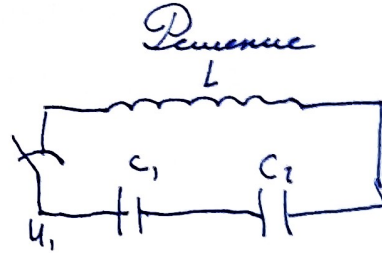 Решение
L
C₁ C₂
U₁